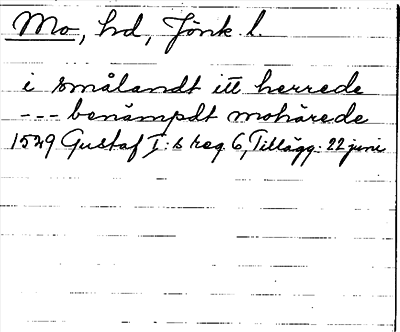 Mo, hd, Jönk. l.
i smålandt itt herrede
--- benämpdt mohärede
1529 Gustaf I:s reg 6, Tillägg. 22 juni